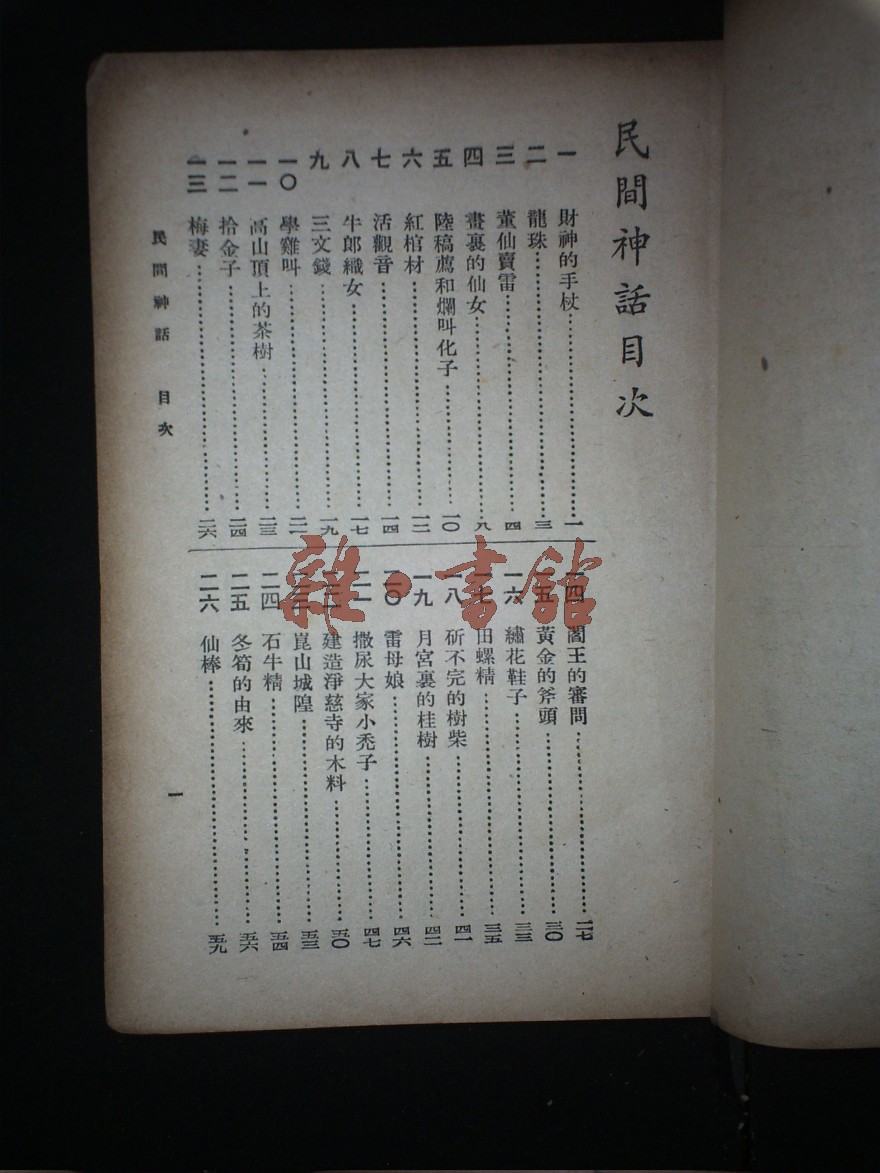 民間神話目次
一 財神的手杖 一
二 龍珠 三
三 董仙賣雷 四
四 畫裏的仙女 八
五 陸稿薦和爛叫化子 一〇
六 紅棺材 一二
七 活觀音 一四
八 牛郎織女 一七
九 三文錢 一九
一〇 學雞叫 二一
一一 高山頂上的茶樹 二三
一二 拾金子 二四
一三 梅妻 二六
一四 閻王的審問 二七
一五 黃金的斧頭 三〇
一六 繡花鞋子 三三
一七 田螺精 三五
一八 斫不完的樹柴 四一
一九 月宮裏的桂樹 四二
二〇 雷母娘 四六
二一 撒尿大家小禿子 四七
二二 建造淨慈寺的木料 五〇
二三 崑山城隍 五三
二四 石牛精 五四
二五 冬筍的由來 五六
二六 仙棒 五九
民間神話 目次
一
雜·書館